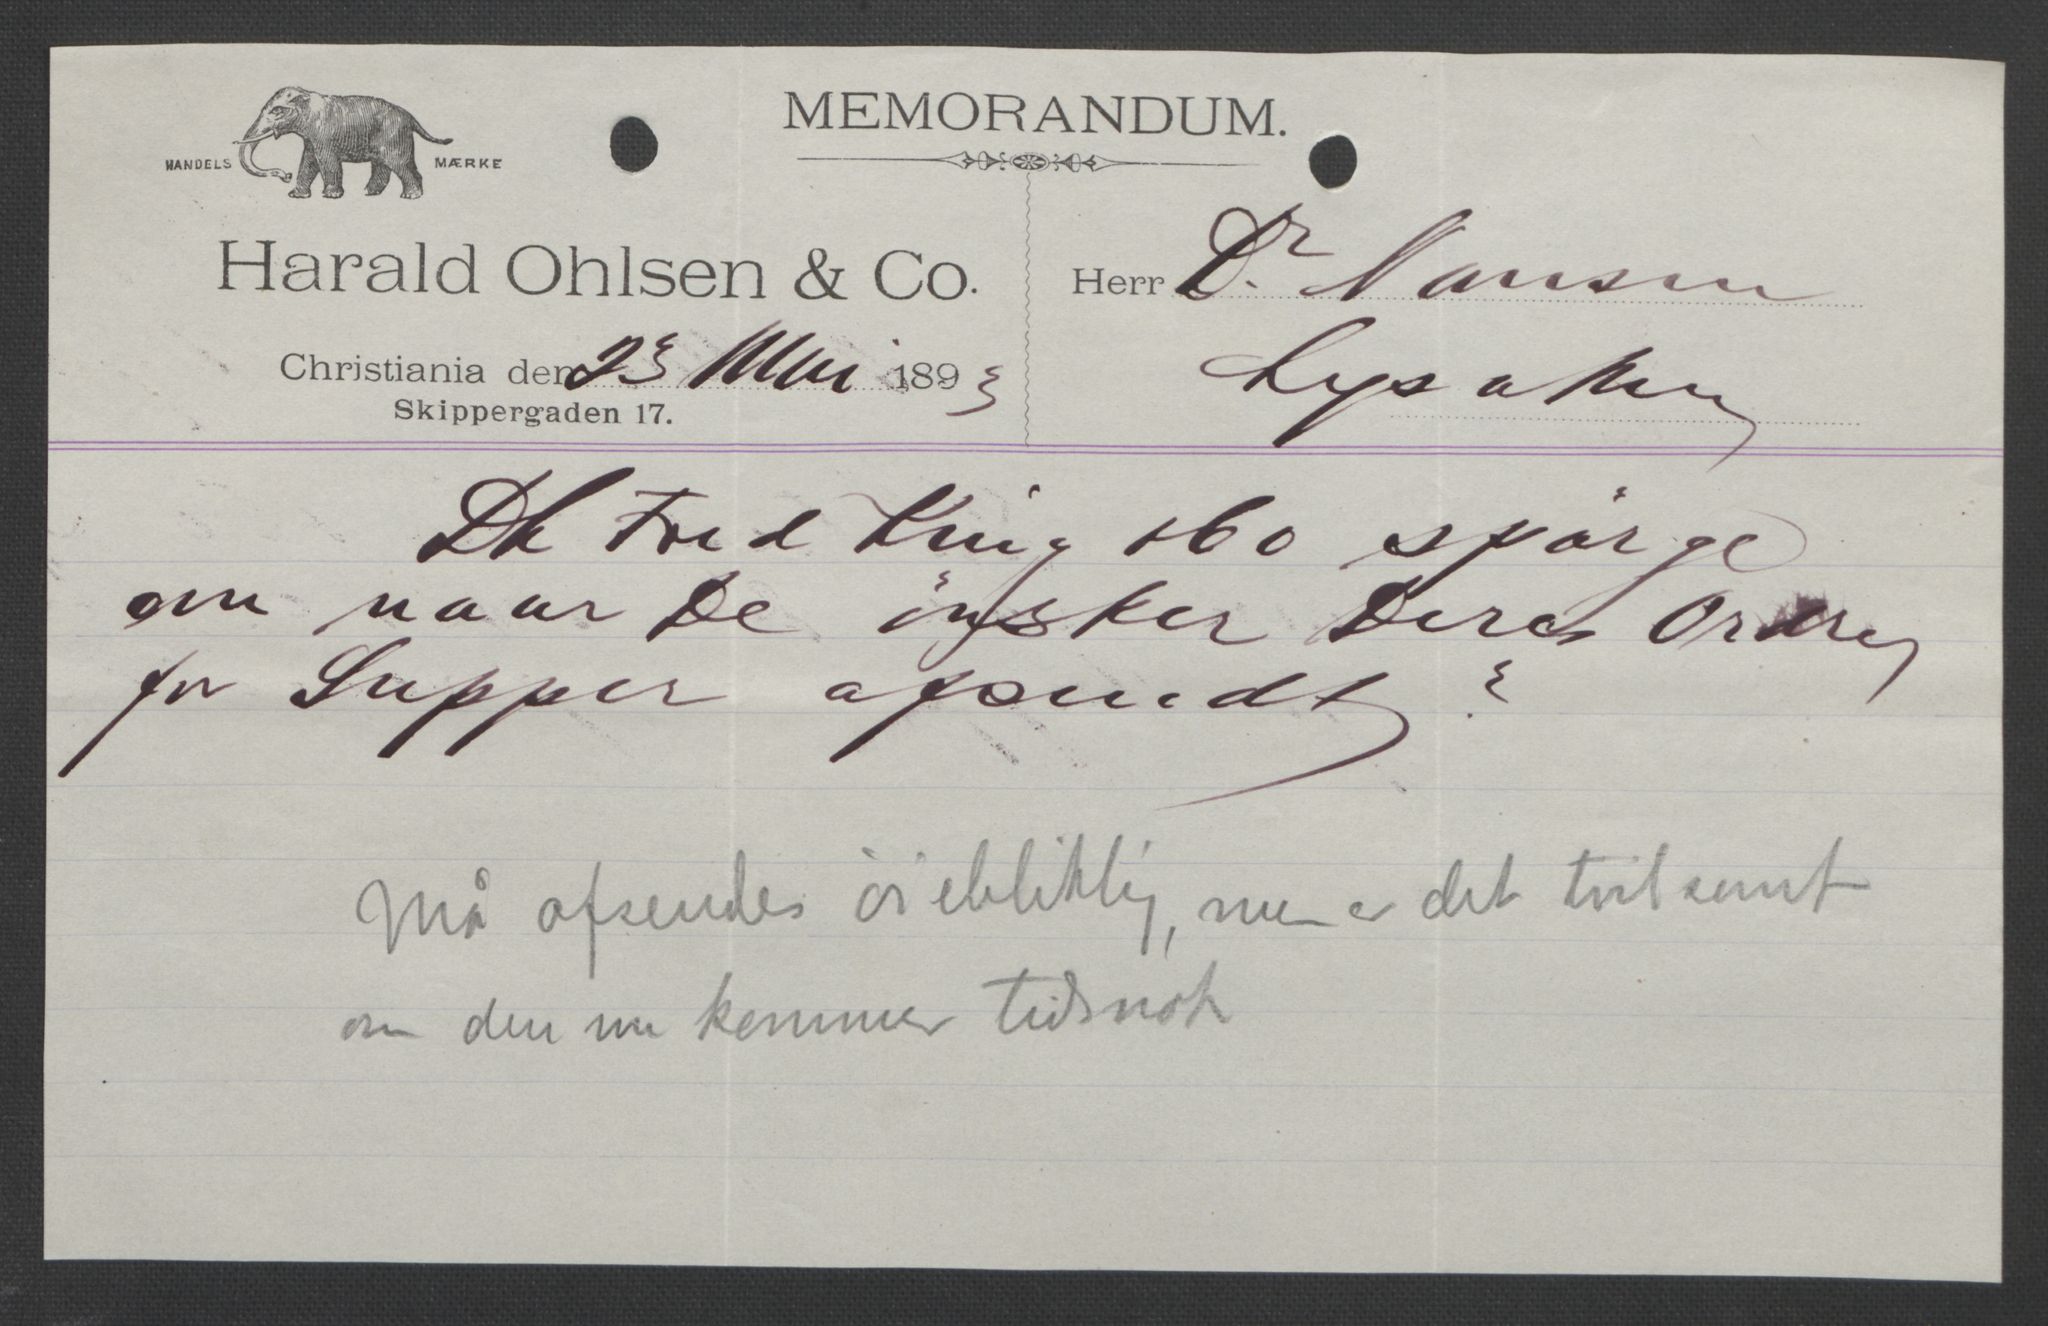 MEMORANDUM.
HANDELS MÆRKE
Harald Ohlsen & Co.
Christiania den 23 Mai 1893
Skippergaden 17.
Herr Dr. Nansen
Lysaker
DHr Fred King & Co spörge
om naar De önsker Deres Ordre
for Supper afsendt?
Må afsendes öiebliklig, men er det tvilsomt
om den nu kommer tidsnok